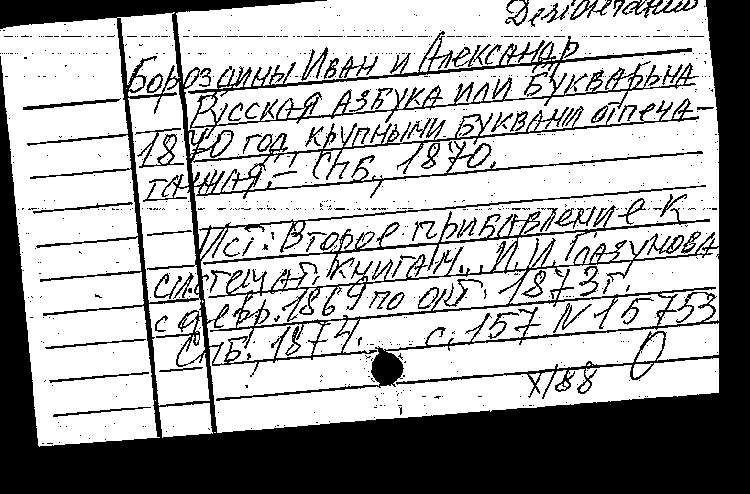 Бороздины Иван и Александр
Русская азбука или букварь на
1870 год, крупными буквами отпеча-
танная. – СПб, 1870.
Ист: Второе прибавление к
системат. книгам... И.И. Глазунова
с февр. 1869 по окт. 1873 г.
СПб., 1874. с. 157 N 15753
X/88 0